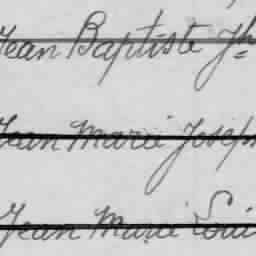 Jean Baptiste Jh
Jean Marie Joseph
Jean Marie Loui